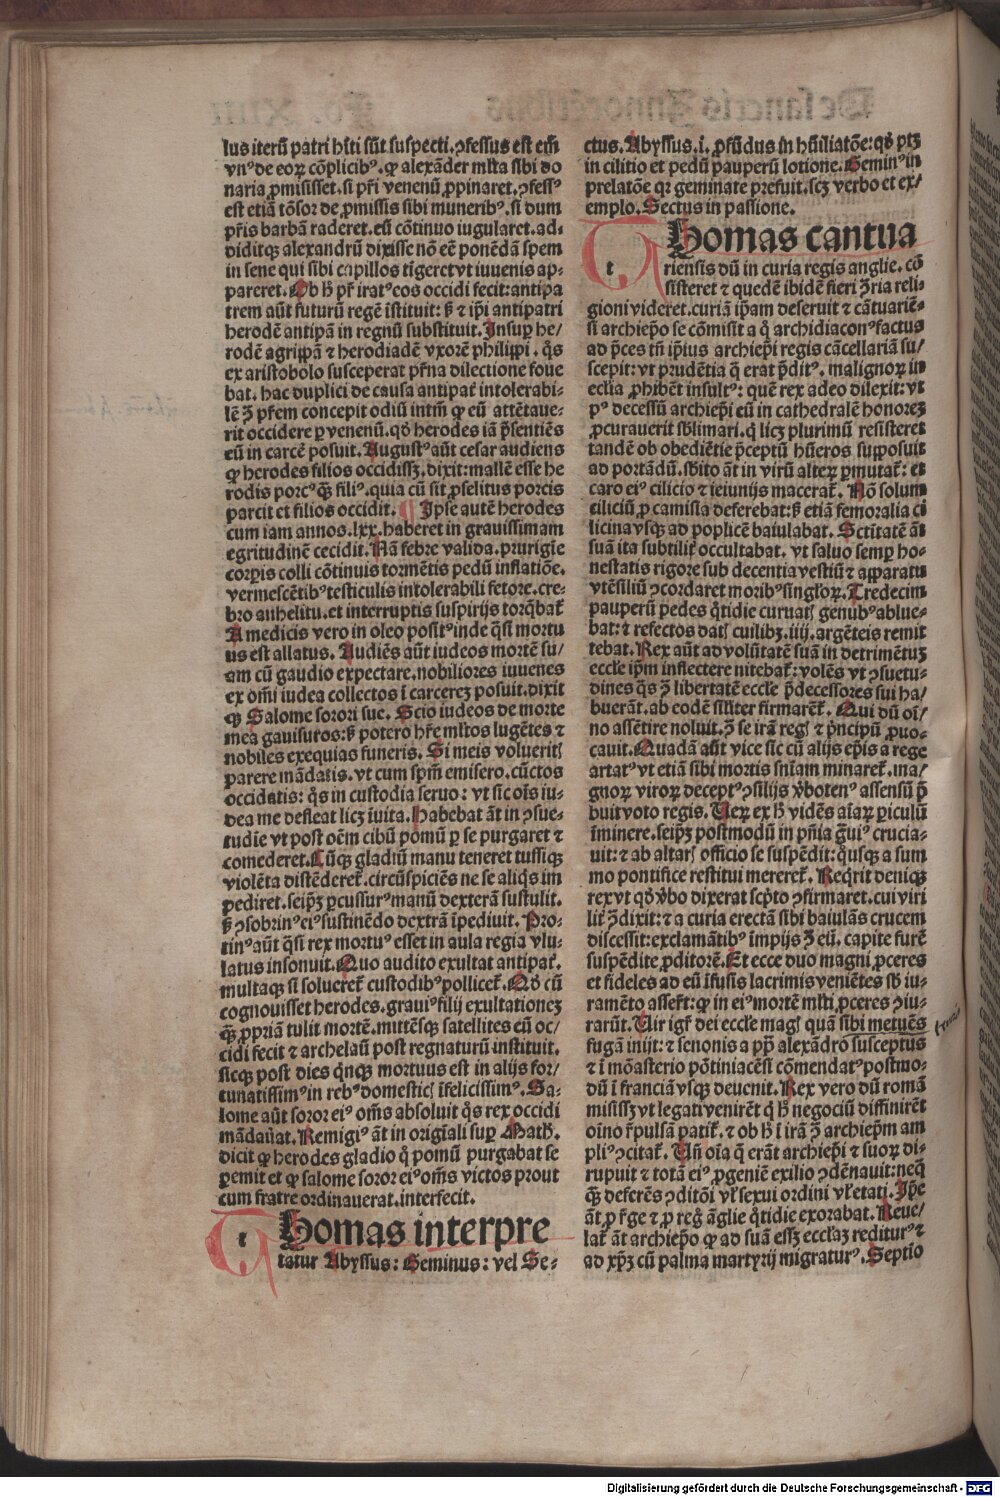 lus iterū patri hr̄ti sūt suspecti. ꝯfessus est em̄
vnꝰ de eoꝝ cōplicibꝰ. ꝙ alexāder ml̄ta sibi do
naria ꝓmisisset. si pr̄i venenū ꝓpinaret. ꝯfessꝰ
est etiā tōsor de ꝓmissis sibi muneribꝰ. si dum
pr̄is barbā raderet. eū cōtinuo iugularet. ad-
diditqꝫ alexandrū dixisse nō eē ponēdā spem
in sene qui sibi capillos tigeret vt iuuenis ap-
pareret. Ob h̄ pr̄ iratꝰ eos occidi fecit: antipa
trem aūt futurū regē īstituit: sꝫ ⁊ ip̄i antipatri
herodē antipā in regnū substituit. Insuꝑ he/
rodē agrippā ⁊ herodiadē vxorē philippi. q̄s
ex aristobolo susceperat pr̄na dilectione foue
bat. hac duplici de causa antipat̄ intolerabi-
lē ꝫ pr̄em concepit odiū intm̄ ꝙ eū attētaue-
rit occidere ꝑ venenū. qd̄ herodes iā p̄sentiēs
eū in carcē posuit. Augustꝰ aūt cesar audiens
ꝙ herodes filios occidissꝫ. dixit: mallē esse he
rodis porcꝰ qꝫ̄ filiꝰ. quia cū sit ꝓselitus porcis
parcit et filios occidit. ¶ Ipse autē herodes
cum iam annos .lxx. haberet in grauissimam
egritudinē cecidit. Nā febre valida. prurigīe
corꝑis colli cōtinuis tormētis pedū inflatiōe.
vermescētibꝰ testiculis intolerabili fetore. cre-
bro anhelitu. et interruptis suspirijs torq̄bat̄
A medicis vero in oleo positꝰ inde q̄si mortu
us est allatus. Audiēs aūt iudeos mortē su/
am cū gaudio expectare. nobiliores iuuenes
ex om̄i iudea collectos ī carcereꝫ posuit. dixit
qꝫ Salome sorori sue. Scio iudeos de morte
mea gauisuros: sꝫ potero hr̄e ml̄tos lugētes ⁊
nobiles exequias funeris. Si meis volueritꝭ
parere mādatis. vt cum spm̄ emisero. cūctos
occidatis: q̄s in custodia seruo: vt sic oīs iu-
dea me defleat licꝫ īuita. Habebat āt in ꝯsue-
tudīe vt post oēm cibū pomū ꝑ se purgaret ⁊
comederet. Cūqꝫ gladiū manu teneret tussiqꝫ
violēta distēderet̄. circūspiciēs ne se aliq̄s im
pediret. seip̄ꝫ ꝑcussurꝰ manū dexterā sustulit.
sꝫ ꝯsobrinꝰ eiꝰ sustinēdo dextrā īpediuit. Pro-
tinꝰ aūt q̄si rex mortuꝰ esset in aula regia vlu-
latus insonuit. Quo audito exultat antipat̄.
multaqꝫ si solueret̄ custodibꝰ pollicet̄. Qd̄ cū
cognouisset herodes. grauiꝰ filij exultationeꝫ
qꝫ̄ ꝓpriā tulit mortē. mittēsqꝫ satellites eū oc/
cidi fecit ⁊ archelaū post regnaturū instituit.
sicqꝫ post dies q̄nqꝫ mortuus est in alijs for/
tunatissimꝰ in rebꝰ domesticꝭ īfelicissimꝰ. Sa-
lome aūt soror eiꝰ om̄s absoluit q̄s rex occidi
mādaūat. Remigiꝰ āt in origīali suꝑ Math̄.
dicit ꝙ herodes gladio q̄ pomū purgabat se
ꝑemit et ꝙ salome soror eiꝰ om̄s victos prout
cum fratre ordinauerat. interfecit.
tHomas interpre
tatur Abyssus: Geminus: vel Se-
ctus. Abyssus .i. ꝓfūdus in hūiliatōe: qd̄ ptꝫ
in cilitio et pedū pauperū lotione. Geminꝰ in
prelatōe qꝛ geminate prefuit. scꝫ verbo et ex/
emplo. Sectus in passione.
tHomas cantua
riensis dū in curia regis anglie. cō
sisteret ⁊ quedē ibidē fieri ꝫria reli-
gioni videret. curiā ip̄am deseruit ⁊ cātuariē-
si archiep̄o se cōmisit a q̄ archidiaconꝰ factus
ad p̄ces tn̄ ip̄ius archiep̄i regis cācellariā su/
scepit: vt prudētia q̄ erat p̄ditꝰ. malignoꝝ in
eccl̄ia ꝓhibēt insultꝰ: quē rex adeo dilexit: vt
pꝰ decessū archiep̄i eū in cathedralē honoreꝫ
ꝓcurauerit sb̄limari. q̄ licꝫ plurimū resisteret
tandē ob obediētie p̄ceptū hūeros supposuit
ad portādū. sb̄ito āt in virū alteꝝ ꝑmutat̄: et
caro eiꝰ cilicio ⁊ ieiunijs macerat̄. Nō solum
ciliciū ꝓ camisia deferebat: sꝫ etiā femoralia ci
licina vsqꝫ ad poplicē baiulabat. Sctītatē āt
suā ita subtilit̄ occultabat. vt saluo semꝑ ho-
nestatis rigore sub decentia vestiū ⁊ apparatu
vtēsiliū ꝯcordaret moribꝰ singl̄oꝝ. Tredecim
pauperū pedes q̄tidie curuatꝭ genubꝰ ablue-
bat: ⁊ refectos datꝭ cuilibꝫ .iiij. argēteis remit
tebat. Rex aūt ad volūtatē suā in detrimētuꝫ
eccl̄e ip̄m inflectere nitebat̄: volēs vt ꝯsuetu-
dines q̄s ꝫ libertatē eccl̄e p̄decessores sui ha/
buerāt. ab eodē sil̄iter firmarēt̄. Qui dū oī/
no assētire noluit. ꝫ se irā regꝭ ⁊ p̄ncipū ꝓuo-
cauit. Quadā aūt vice sic cū alijs ep̄is a rege
artatꝰ vt etiā sibi mortis sn̄iam minaret̄. ma/
gnoꝝ viroꝝ deceptꝰ ꝯsilijs v̄botenꝰ assensū p̄
buit voto regis. Ueꝝ ex h̄ vidēs aīaꝝ piculū
īminere. seip̄ꝫ postmodū in pn̄ia ḡuiꝰ crucia-
uit: ⁊ ab altarꝭ officio se suspēdit: q̄usqꝫ a sum
mo pontifice restitui mereret̄. Req̄rit deniqꝫ
rex vt qd̄ v̄bo dixerat scp̄to ꝯfirmaret. cui viri
lit̄ ꝫdixit: ⁊ a curia erectā sibi baiulās crucem
discessit: exclamātibꝰ īmpijs ꝫ eū. capite furē
suspēdite ꝓditorē. Et ecce duo magni ꝓceres
et fideles ad eū īfusis lacrimis veniētes sb̄ iu-
ramēto asserūt: ꝙ in eiꝰ mortē ml̄ti ꝓceres ꝯiu-
rarūt. Uir igr̄ dei eccl̄e magꝭ quā sibi metuēs
fugā iniit: ⁊ senonis a pp̄ alexādro susceptus
⁊ ī mōasterio pōtiniacēsi cōmendatꝰ postmo-
dū ī franciā vsqꝫ deuenit. Rex vero dū romā
misissꝫ vt legati venirēt q̄ h̄ negociū diffinirēt
oīno r̄pulsā patit̄. ⁊ ob h̄ ī irā ꝫ archiep̄m am
pliꝰ ꝯcitat̄. Un̄ oīa q̄ erāt archiep̄i ⁊ suoꝝ di-
rupuit ⁊ totā eiꝰ ꝓgeniē exilio ꝯdēnauit: neqꝫ
qꝫ̄ deferēs ꝯditōi vl̄ sexui ordini vl̄ etati. Ip̄e
āt ꝓ r̄ge ⁊ ꝓ regꝭ āglie q̄tidie exorabat. Reue/
lat̄ āt archiep̄o ꝙ ad suā essꝫ eccl̄aꝫ rediturꝰ ⁊
ad xp̄ꝫ cū palma martyrij migraturꝰ. Septīo
Digitalisierung gefördert durch die Deutsche Forschungsgemeinschaft - DFG